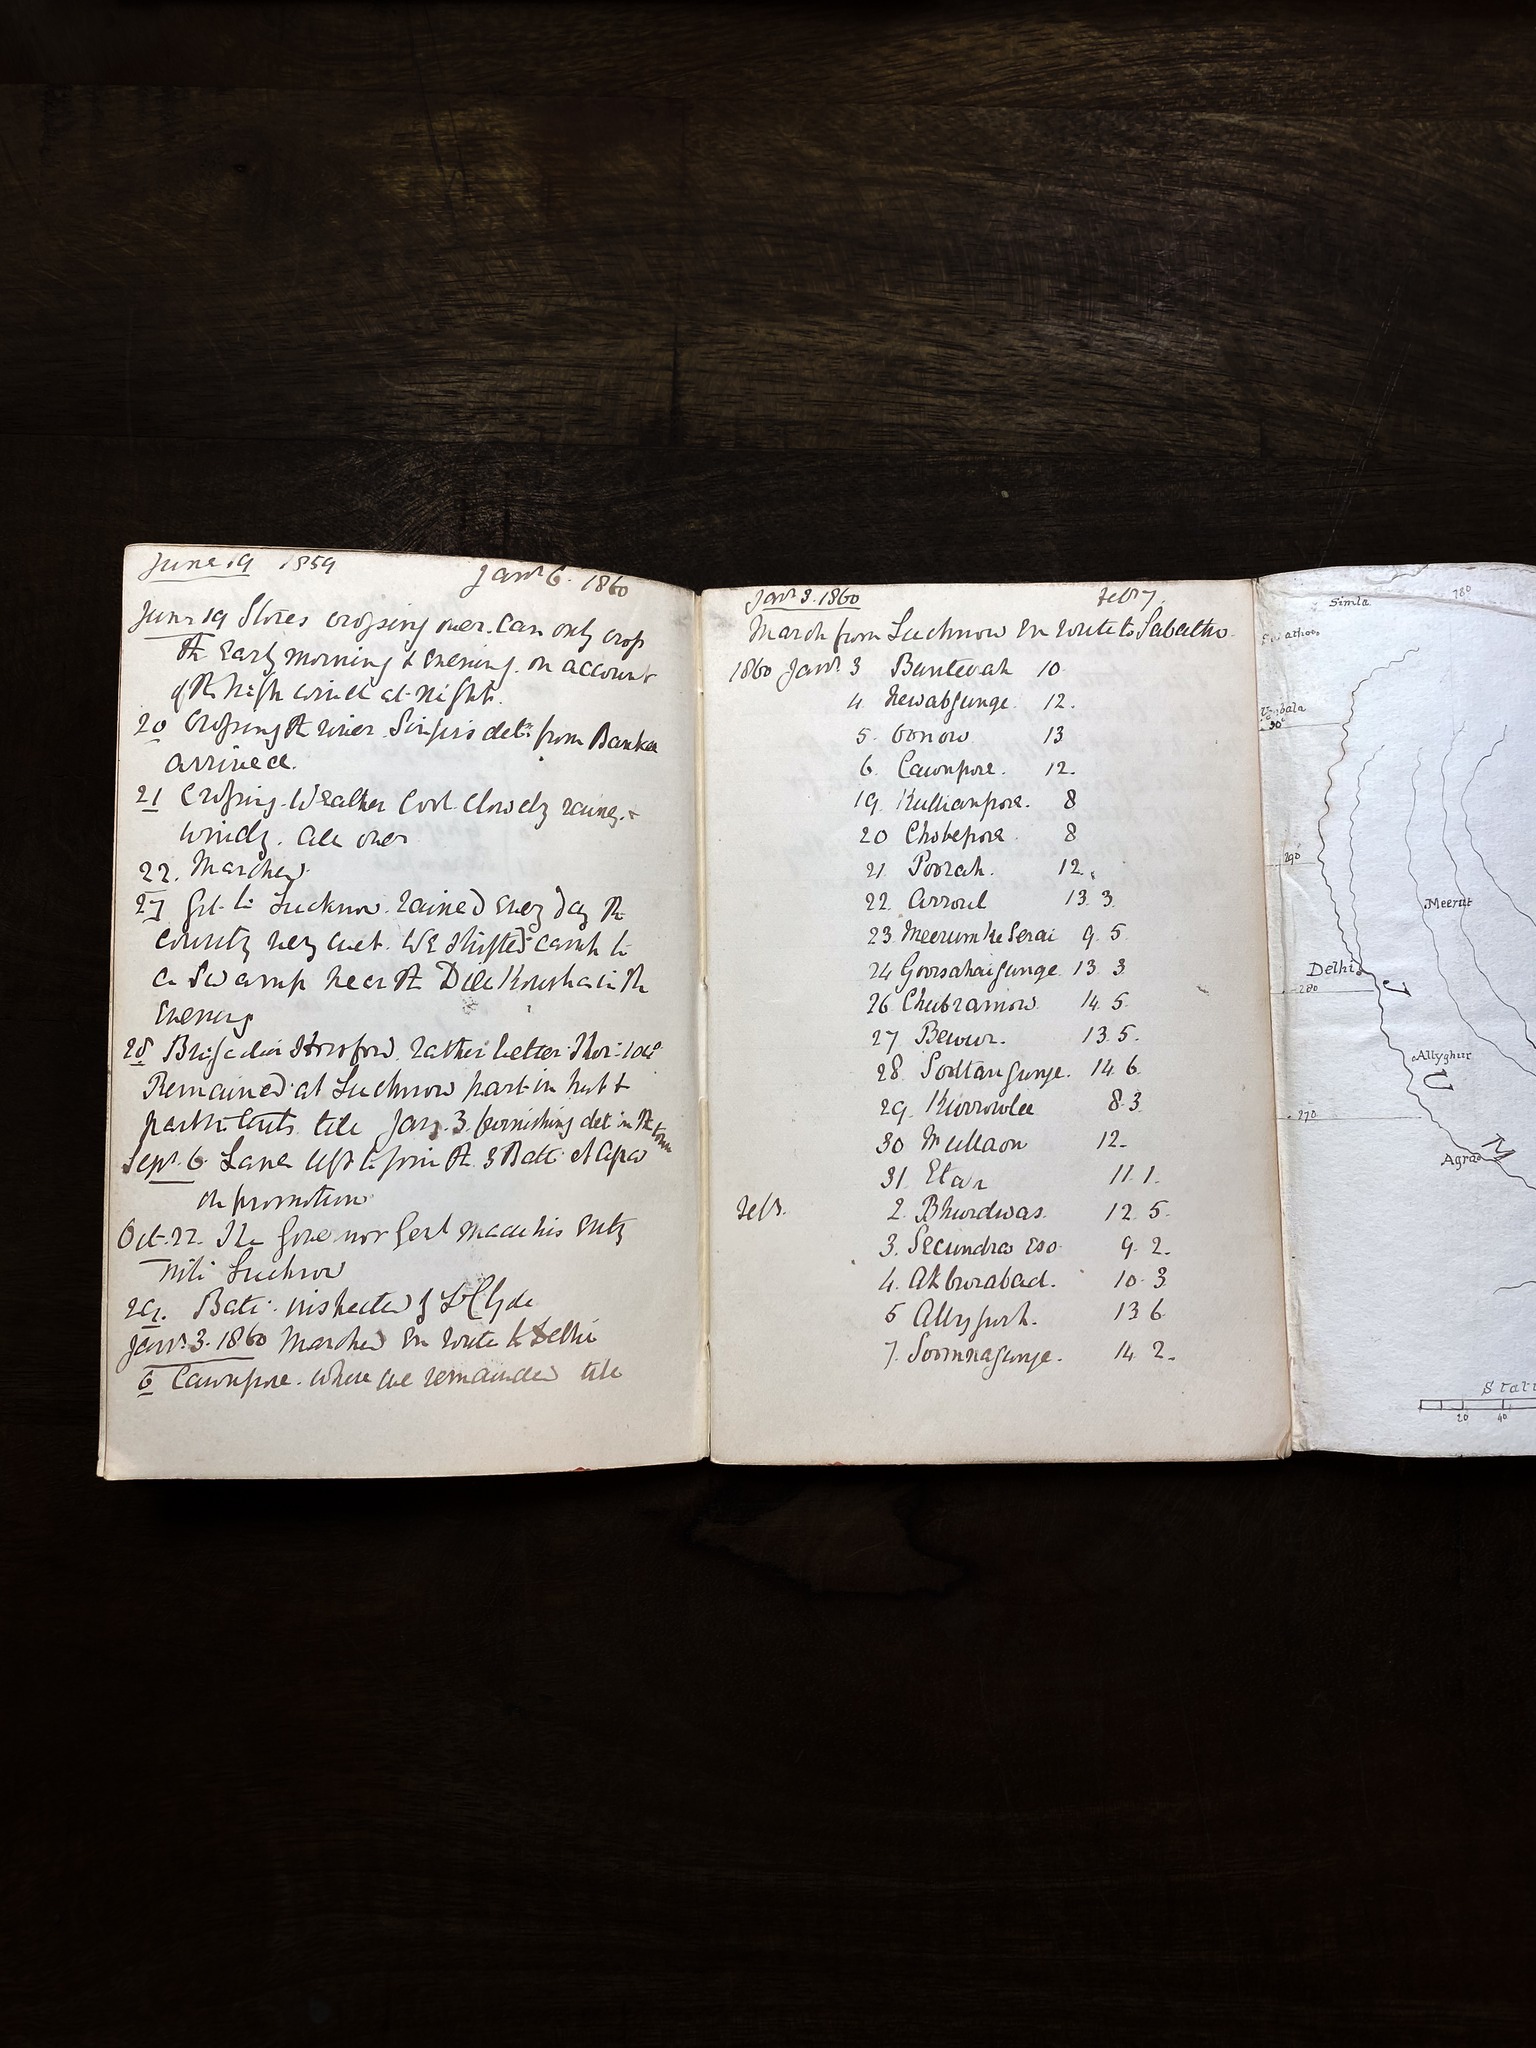 June 19 1859 Janr 6. 1860
June 19 Stores crossing over. Can only cross
the Early morning & Evening. on account
of the high wind at night.
20 Crossing the river. dett from Banka
arrived.
21 Crossing. Weather Cool Cloudy rainy. &
windy. All over
22. Marched.
27 Got to Lucknow. rained Every day the
country very wet. We shifted camp to
a Swamp near the Dilkousha in the
Evening
28 Brigadier Horsford. rather better. Ther: 104°
Remained at Lucknow part in huts &
part in tents. till Jany 3. furnishing det in the town
Sept. 6 Lane left to join the 3 Batt. at Agra
on promotion
Oct. 22. The Governor Genl made his entry
into Lucknow
29. Batt. inspected by Ld Clyde
Janr. 3. 1860 Marched En route to Delhi
6 Cawnpore. where we remained till
Janr 3. 1860 Febr 7.
March from Lucknow En route to Sabathu.
1860 Janr. 3 Buntevah 10
4. Newabgunge. 12.
5. Oonow 13
6. Cawnpore. 12.
19. Kullianpore. 8
20 Chobepore. 8
21. Poorah. 12.
22. Arroul 13. 3.
23. Meerum ke Serai 9. 5.
24 Goorsahaigunge. 13. 3
26 Chubramow. 14. 5.
27. Bewur. 13. 5.
28. Sooltangunge. 14. 6.
29. Kurrowlee 8. 3
30 Mullaon 12.
31. Etah 11. 1.
Febr. 2. Bhurdwas. 12. 5.
3. Secundra Eso 9. 2.
4. Akburabad. 10. 3
5 Allyghurh. 13 6
7. Soomnagunge. 14. 2.
Simla 780
Umbala
30°
290
Meerut
Delhi
280
Allyghur
270
Agra
J
U
M
20 40